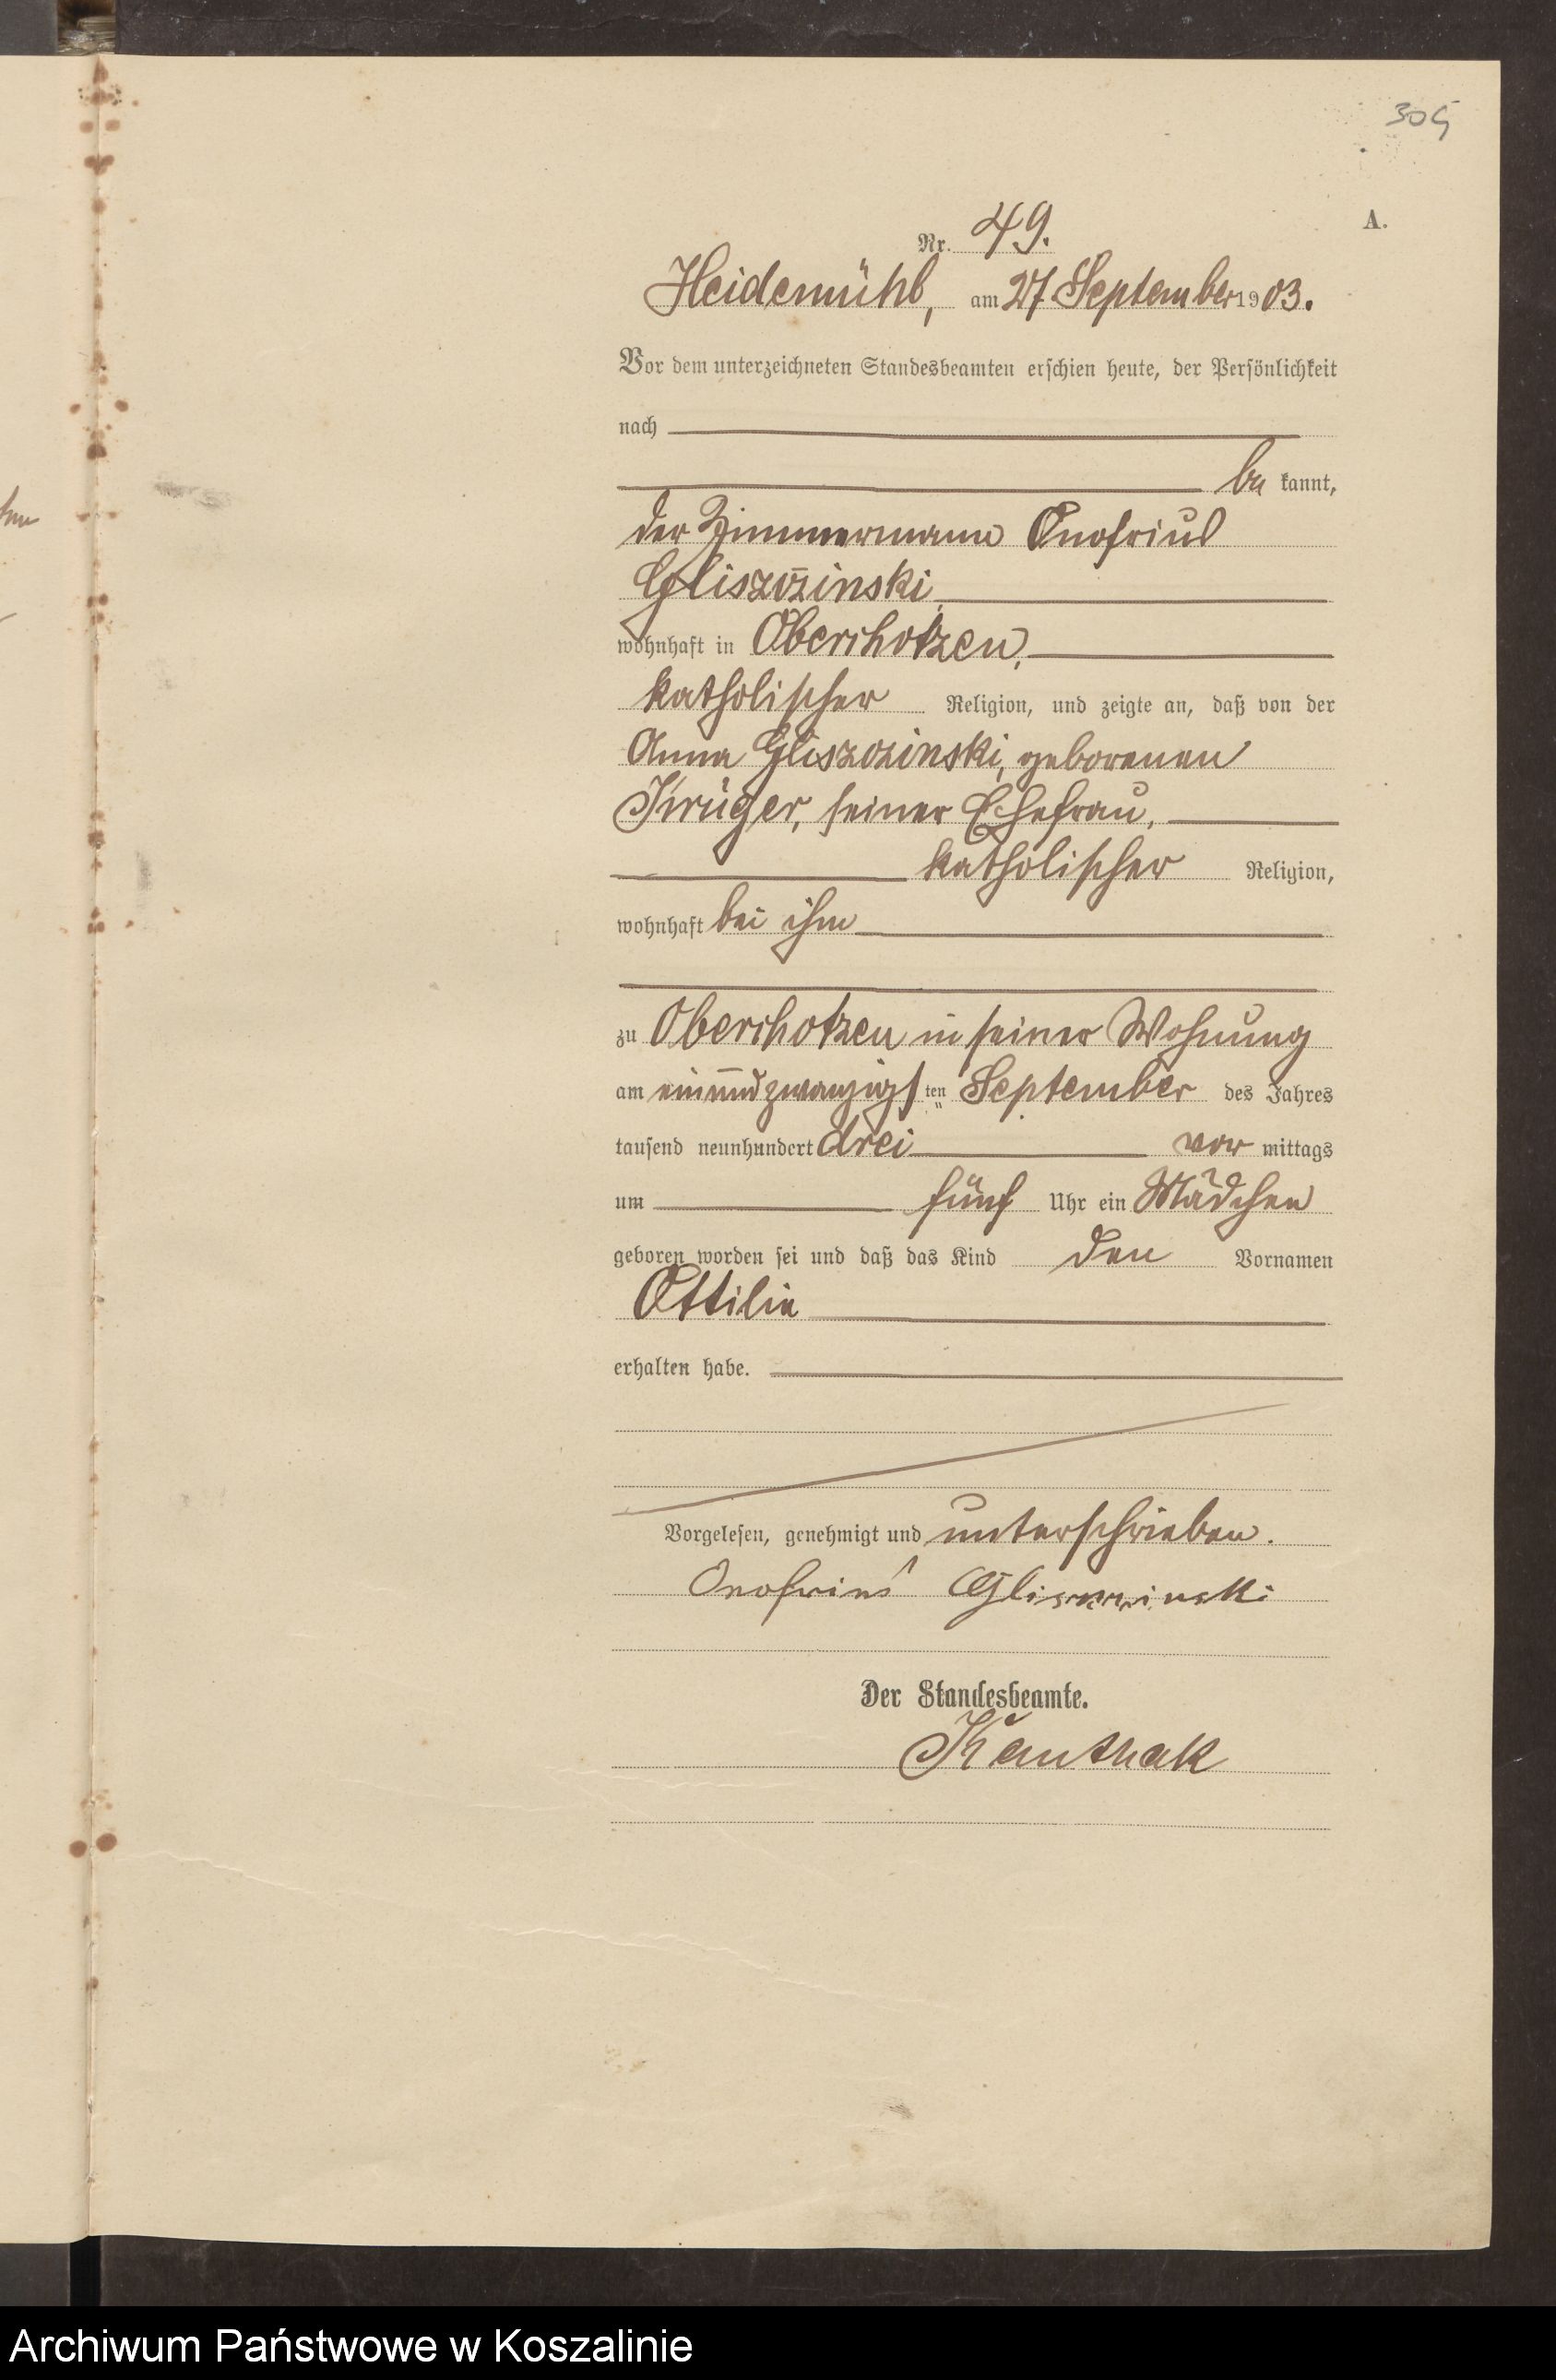 305
A.
Nr. 49.
Heidemühl, am 27. September 1903.
Vor dem unterzeichneten Standesbeamten erschien heute, der Persönlichkeit
nach
be kannt,
der Zimmermann Onofrius
Gliszczinski,
wohnhaft in Oberchotzen,
katholischer Religion, und zeigte an, daß von der
Anna Gliszczinski, geborenen
Krüger, seiner Ehefrau,
katholischer Religion,
wohnhaft bei ihm
zu Oberchotzen in seiner Wohnung
am einundzwanzigsten September des Jahres
tausend neunhundert drei vor mittags
um fünf Uhr ein Mädchen
geboren worden sei und daß das Kind den Vornamen
Ottilie
erhalten habe.
Vorgelesen, genehmigt und unterschrieben.
Onofrius
Der Standesbeamte.
Archiwum Państwowe w Koszalinie